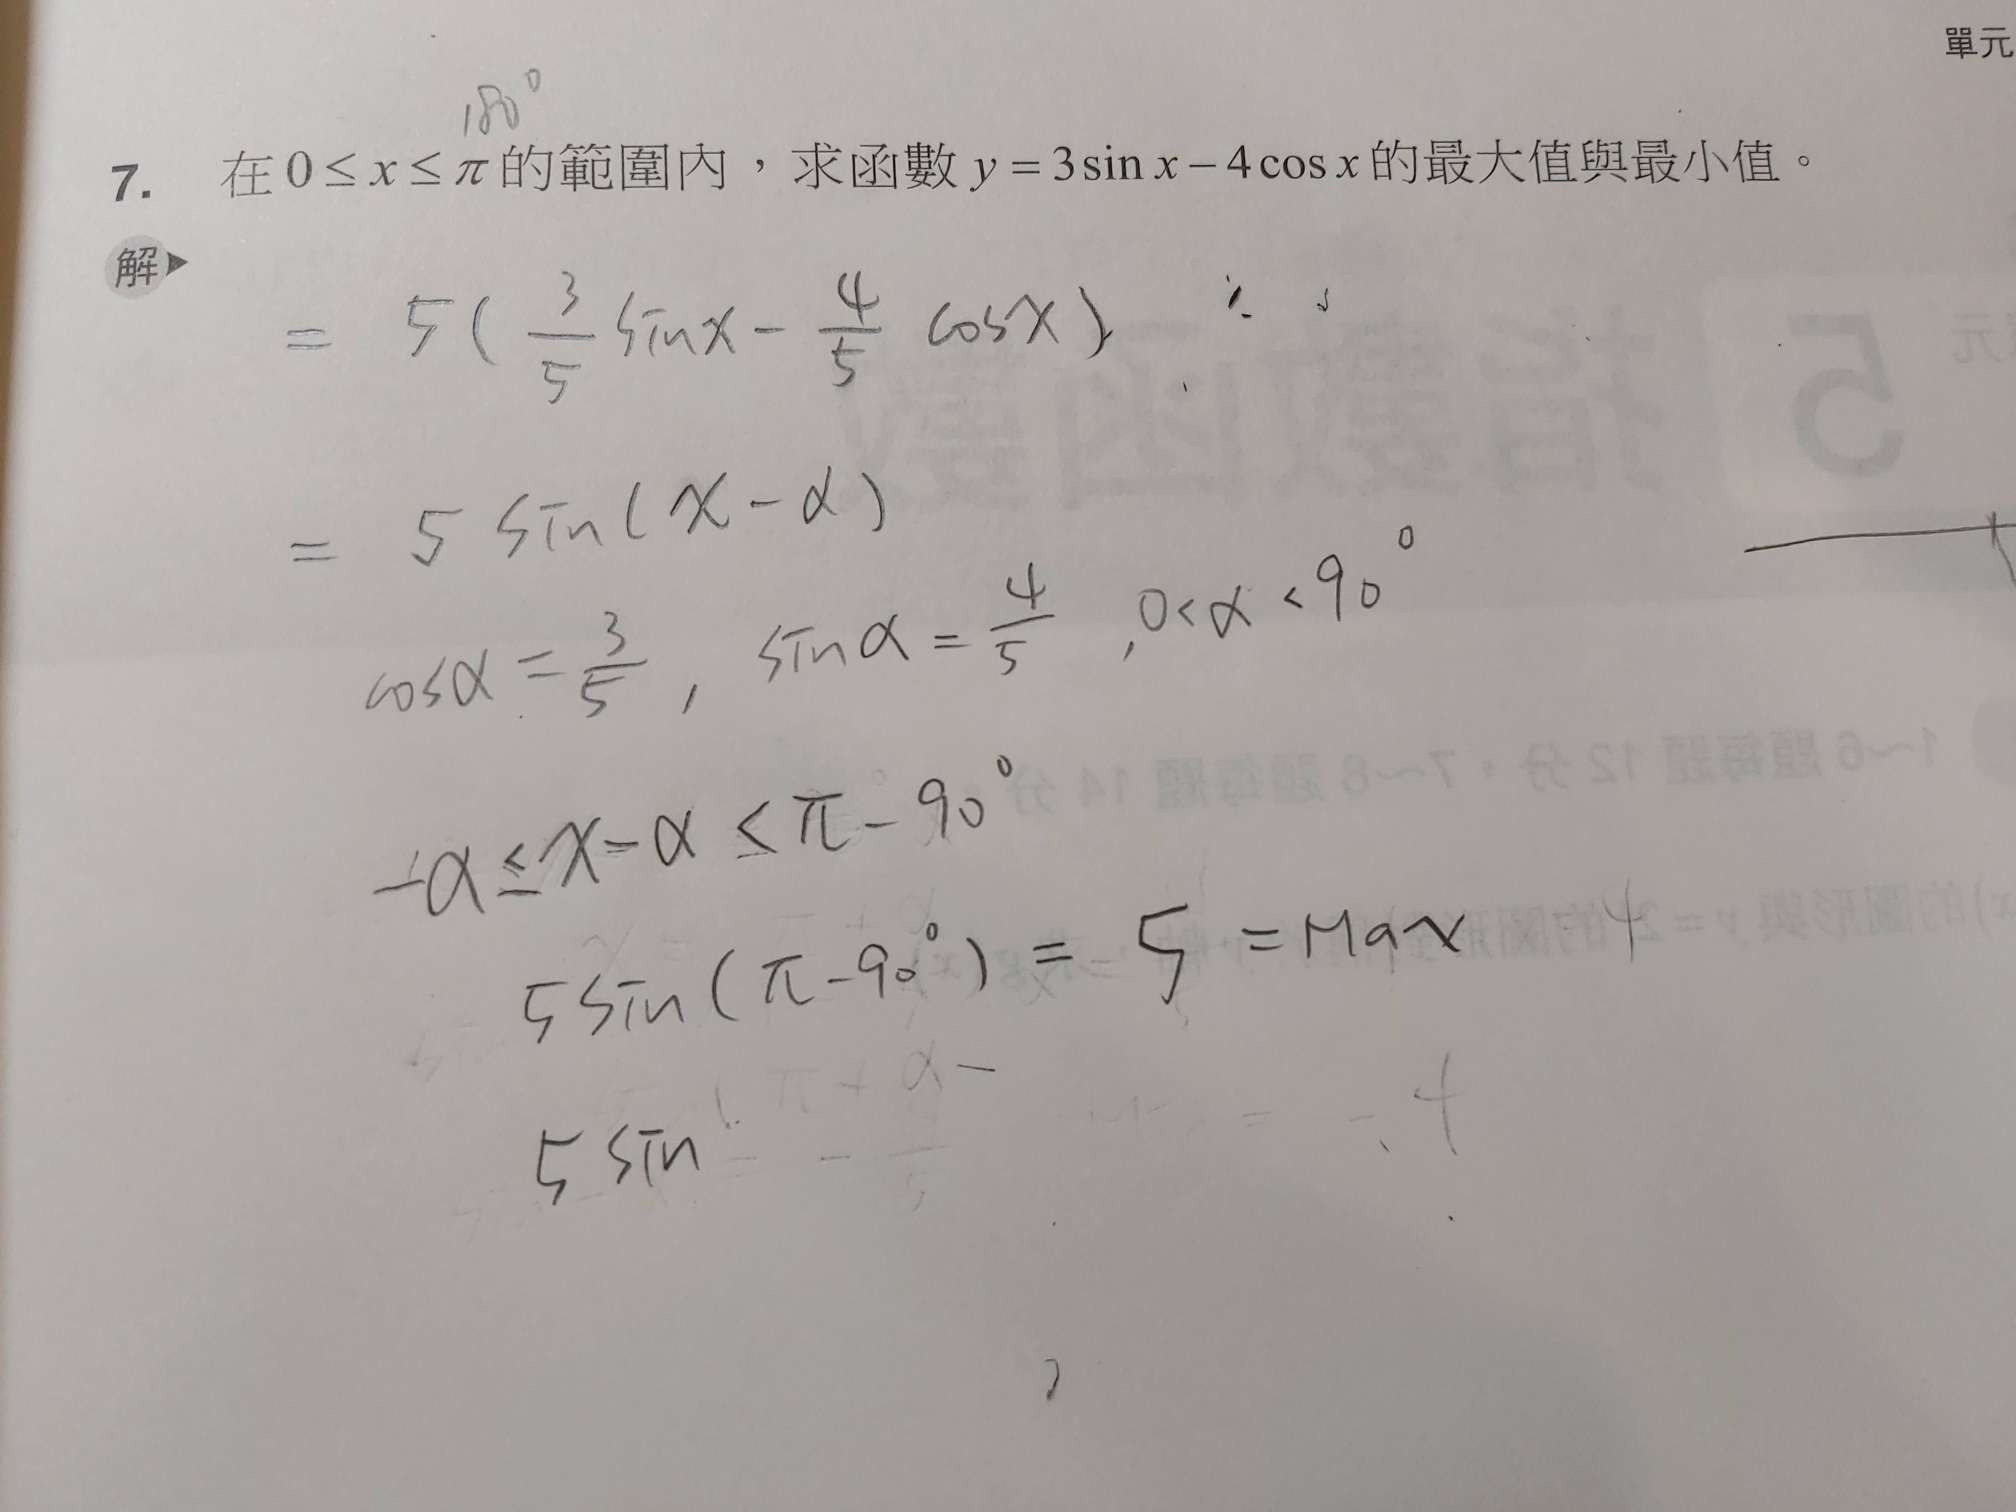 單元
180°
7. 在 0 ≤ x ≤ π 的範圍內，求函數 y = 3 sin x − 4 cos x 的最大值與最小值。
解▶
= 5 ( 3/5 sinx − 4/5 cosx )
= 5 sin ( x − α )
cosα = 3/5 , sinα = 4/5 , 0 < α < 90°
−α ≤ x − α ≤ π − 90°
5 sin ( π − 90° ) = 5 = Max
5 sin